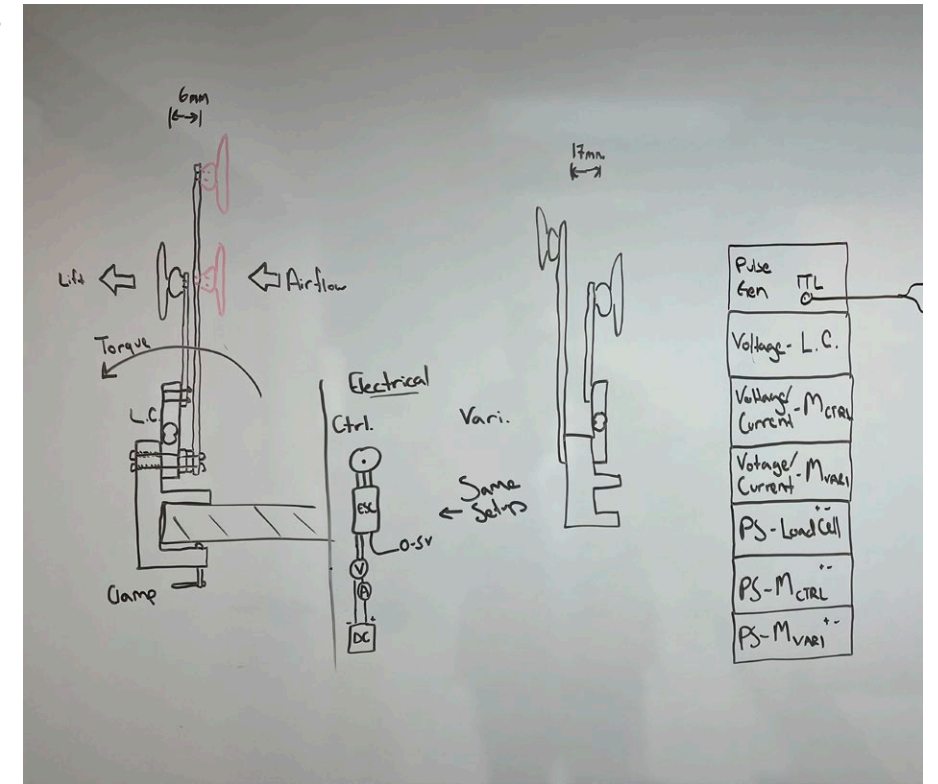 6mm
Lift
Airflow
Torque
L.C.
Clamp
Electrical
Ctrl.
ESC
0-5V
V
A
- +
DC
17mm
Vari.
← Same
Setup
Pulse
Gen TTL
Voltage - L.C.
Voltage/
Current - MCTRL
Votage/
Current - MVARI
+ -
PS - Load Cell
+ -
PS - MCTRL
+ -
PS - MVARI